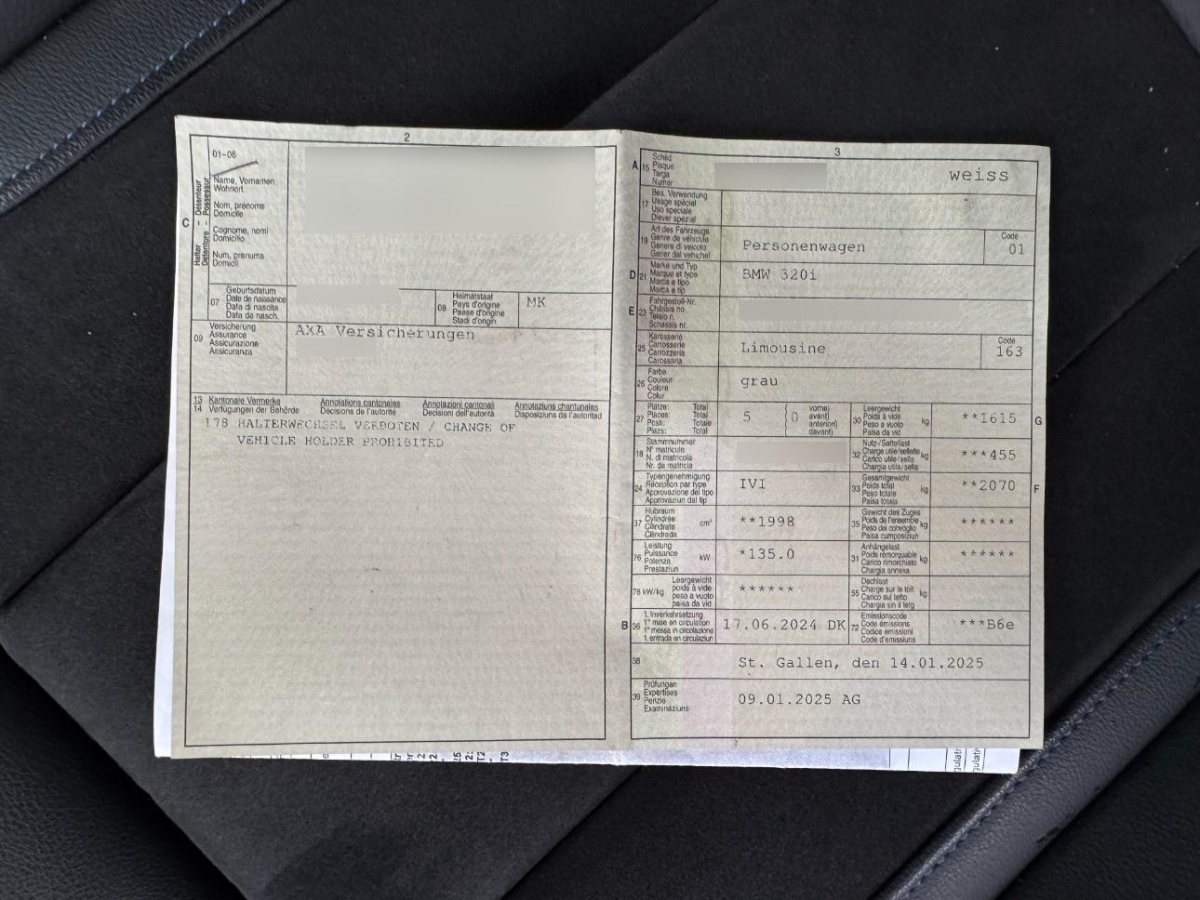 2
01-06
C
Halter - Détenteur
Detentore - Possessur
Name, Vornamen
Wohnort
Nom, prénoms
Domicile
Cognome, nomi
Domicilio
Num, prenums
Domicil
07
Geburtsdatum
Date de naissance
Data di nascita
Data da nasch.
08
Heimatstaat
Pays d'origine
Paese d'origine
Stadi d'origin
MK
09
Versicherung
Assurance
Assicurazione
Assicuranza
AXA Versicherungen
13 Kantonale Vermerke Annotations cantonales Annotazioni cantonali Annotaziuns chantunalas
14 Verfügungen der Behörde Décisions de l'autorité Decisioni dell'autorità Disposiziuns da l'autoritad
178 HALTERWECHSEL VERBOTEN / CHANGE OF
VEHICLE HOLDER PROHIBITED
3
A 15
Schild
Plaque
Targa
Numer
weiss
17
Bes. Verwendung
Usage spécial
Uso speciale
Diever spezial
19
Art des Fahrzeugs
Genre de véhicule
Genere di veicolo
Gener dal vehichel
Personenwagen
Code
01
D 21
Marke und Typ
Marque et type
Marca e tipo
Marca e tip
BMW 320i
E 23
Fahrgestell-Nr.
Châssis no.
Telaio n.
Schassis nr.
25
Karosserie
Carrosserie
Carrozzeria
Carossaria
Limousine
Code
163
26
Farbe
Couleur
Colore
Colur
grau
27
Plätze: Total
Places: Total
Posti: Totale
Plazs: Total
5
0
vorne)
avant)
anteriori)
davant)
30
Leergewicht
Poids à vide
Peso a vuoto
Paisa da vid
kg
**1615
G
18
Stammnummer
N° matricule
N. di matricola
Nr. da matricla
32
Nutz-/Sattellast
Charge utile/sellette
Carico utile/sella
Chargia utila/sella
kg
***455
24
Typengenehmigung
Réception par type
Approvazione del tipo
Approvaziun dal tip
IVI
33
Gesamtgewicht
Poids total
Peso totale
Paisa totala
kg
**2070
F
37
Hubraum
Cylindrée
Cilindrata
Cilindrada
cm³
**1998
35
Gewicht des Zuges
Poids de l'ensemble
Peso del convoglio
Paisa cumposiziun
kg
******
76
Leistung
Puissance
Potenza
Prestaziun
kW
*135.0
31
Anhängelast
Poids remorquable
Carico rimorchiato
Chargia annexa
kg
******
78 kW/kg
Leergewicht
poids à vide
peso a vuoto
paisa da vid
******
55
Dachlast
Charge sur le toit
Carico sul tetto
Chargia sin il tetg
kg
B 36
1. Inverkehrsetzung
1re mise en circulation
1a messa in circolazione
1. entrada en circulaziun
17.06.2024 DK
72
Emissionscode
Code émissions
Codice emissioni
Code d'emissiuns
***B6e
38
St. Gallen, den 14.01.2025
39
Prüfungen
Expertises
Perizie
Examinaziuns
09.01.2025 AG